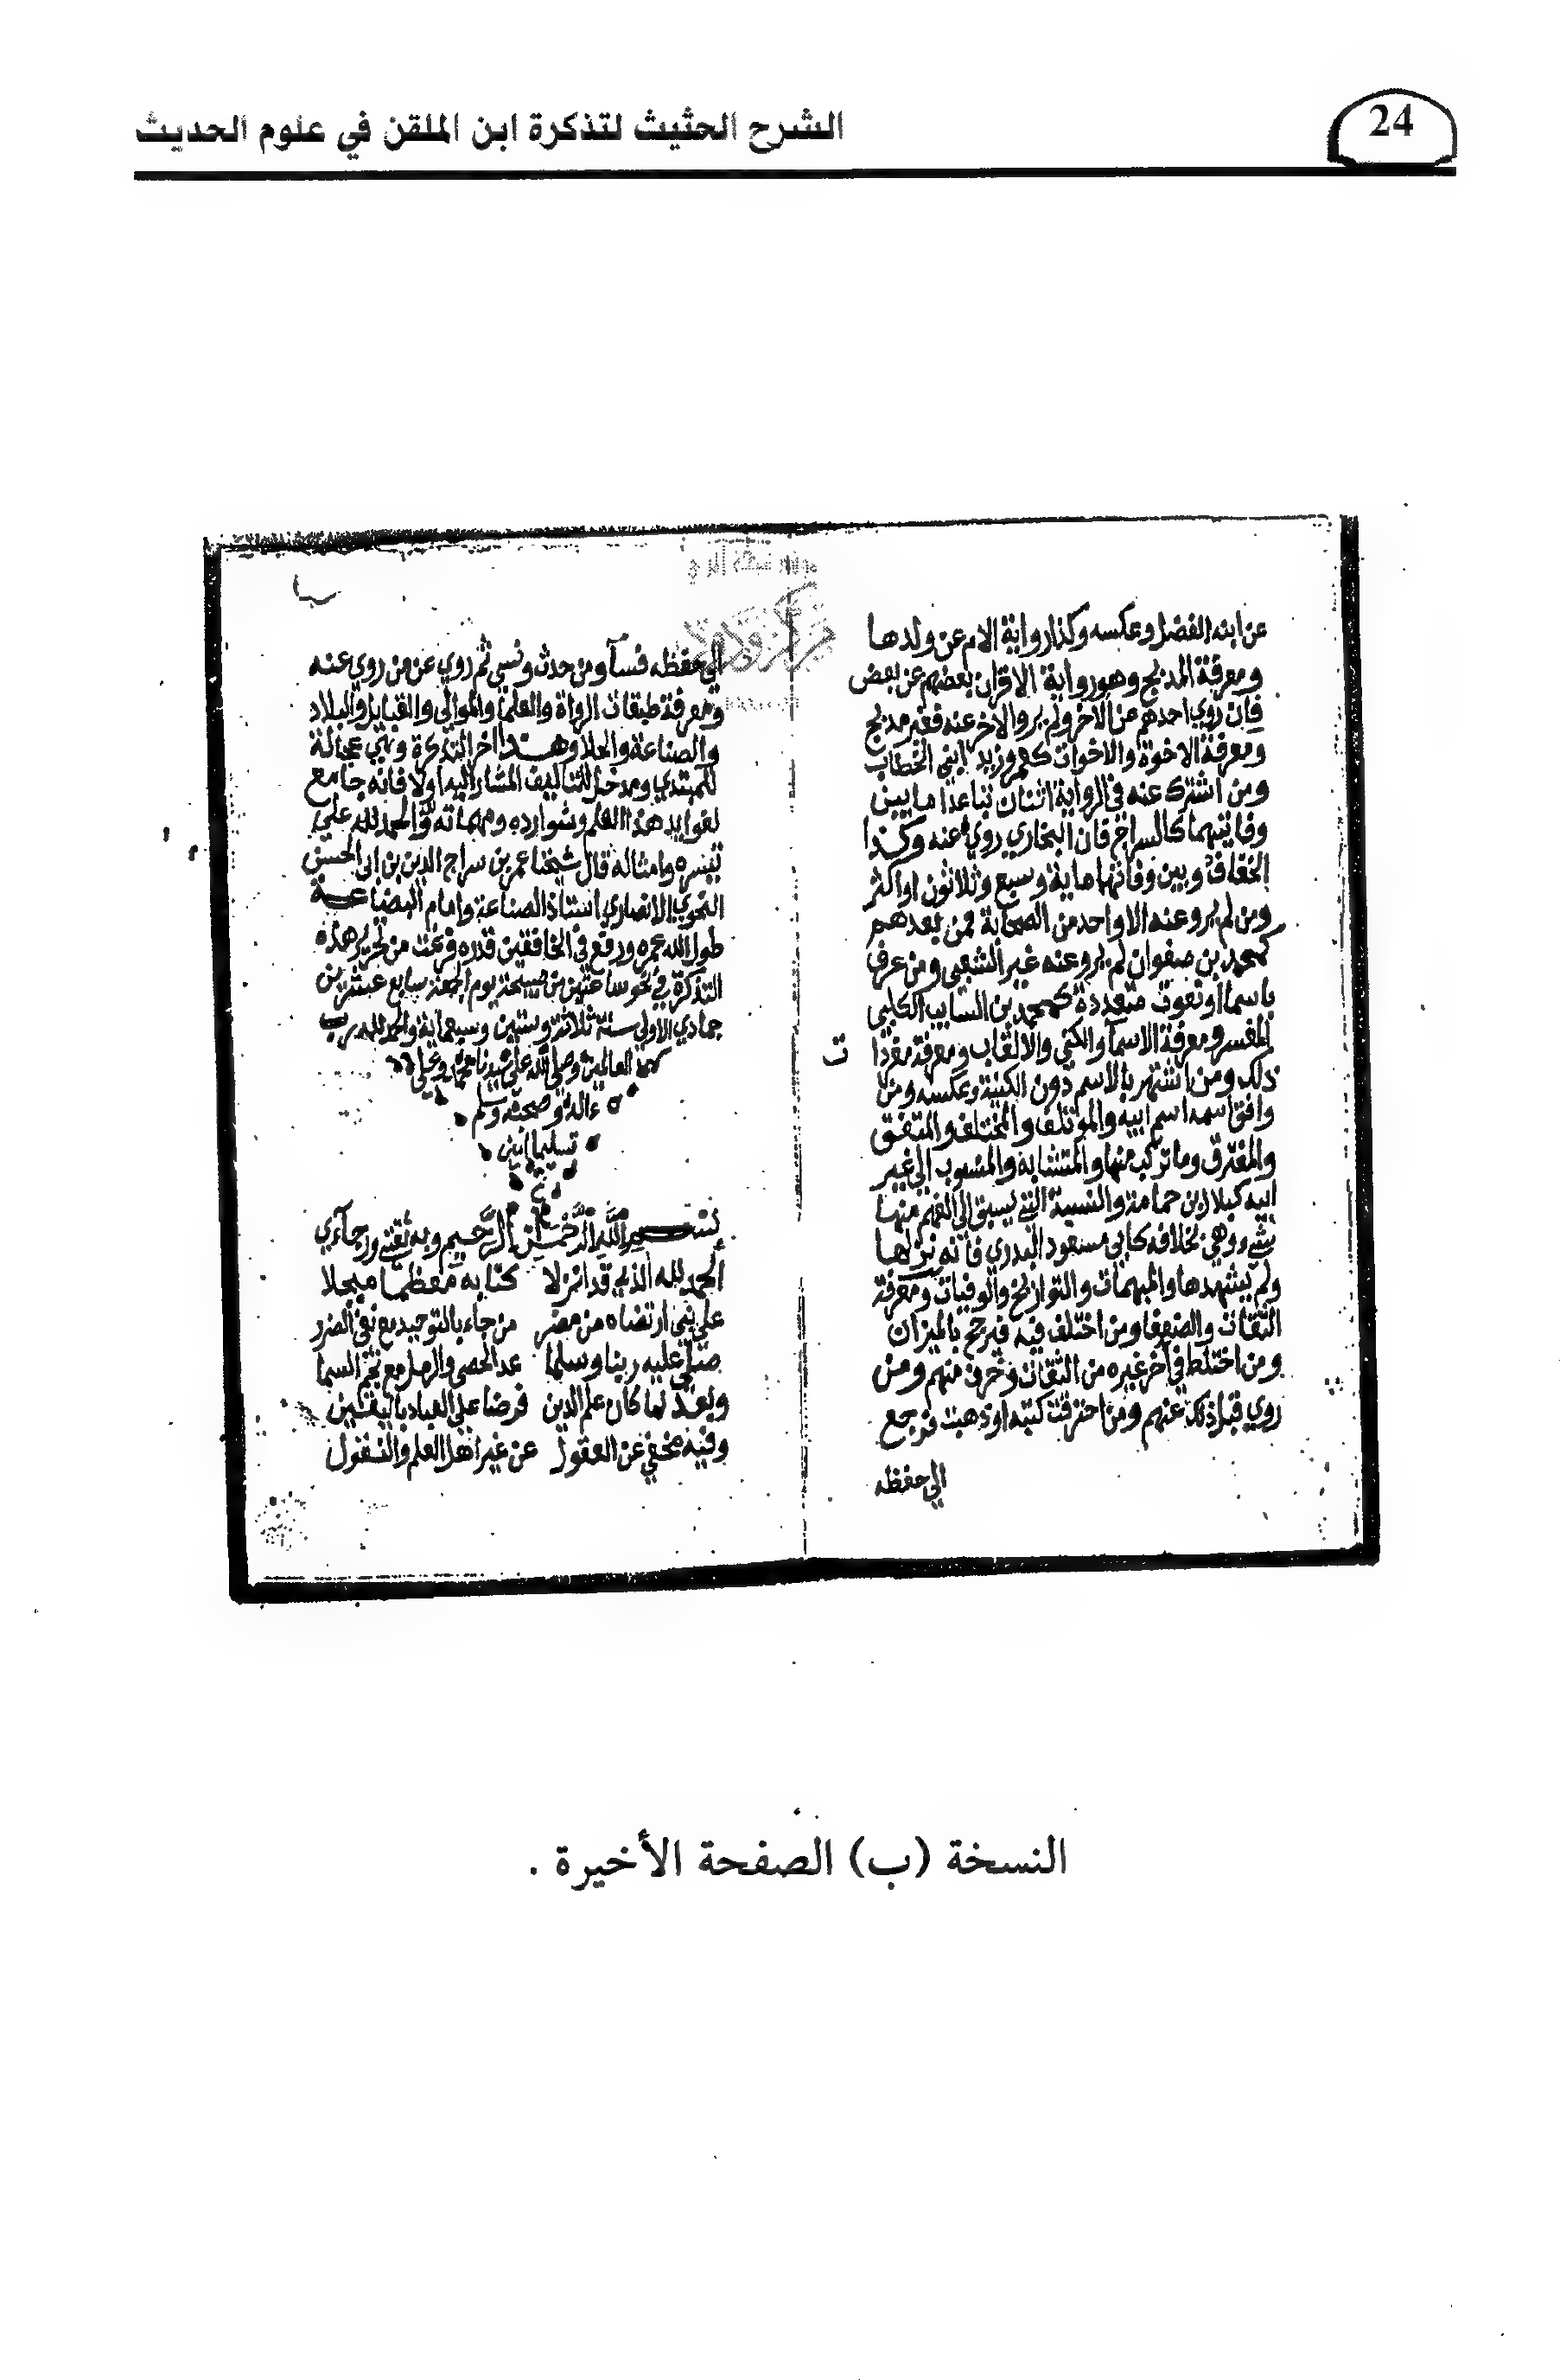 24
الشرح الحثيث لتذكرة ابن الملقن في علوم الحديث
عن ابنه الفضل وعكسه وكذا رواية الام عن ولدها
ومعرفة المدبج وهو رواية الاقران بعضهم عن بعض
فان روي احدهم عن الاخر ولم يرو الاخر عنه فغير مدبج
ومعرفة الاخوة والاخوات كعمر وزيد ابني الخطاب
ومن اشترك عنه في الرواية اثنان تباعدا ما بين
وفاتيهما كالسراج فان البخاري روي عنه وكذا
الخفاف وبين وفاتهما ماية وسبع وثلاثون او اكثر
ومن لم يرو عنه الا واحد من الصحابة فمن بعدهم
كمحمد بن صفوان لم يرو عنه غير الشعبي ومن عرف
باسما او نعوت متعددة كمحمد بن السايب الكلبي
المفسر ومعرفة الاسمآ والكني والالقاب ومعرفة مفردا
ت
ذلك ومن اشتهر بالاسم دون الكنية وعكسه ومن
وافق اسمه اسم ابيه والموتلف والمختلف والمتفق
والمفترق وما تركب منها والمتشابه والمنسوب الي غير
ابيه كبلال بن حمامة والنسبة التي يسبق الي الفهم منها
شيء وهي بخلافه كابي مسعود البدري فانه نزلها
ولم يشهدها والمبهمات والتواريخ والوفيات ومعرفة
الثقات والضعفا ومن اختلف فيه فيرجح بالميزان
ومن اختلط في اخر غيره من الثقات وخرف منهم ومن
روي قبل ذلك عنهم ومن احترقت كتبه او ذهبت فرجع
الي حفظه
الي حفظه فسآ ومن حدث ونسي ثم روي عن من روي عنه
ومعرفة طبقات الرواة والعلما والموالي والقبايل والبلاد
والصناعة والحلا وهذا اخر التذكرة وهي عجالة
للمبتدي ومدخل للتاليف المشار اليه اولا فانه جامع
لفوايد هذا العلم وشوارده ومهماته والحمد لله علي
تيسره وامثاله قال شيخنا عمر بن سراج الدين بن ابي الحسن
النحوي الانصاري استاذ الصناعة وامام البضاعة
طول الله عمره ورفع في الخافقين قدره فرغت من تحرير هذه
التذكرة في نحو ساعتين من صبيحة يوم الجمعة سابع عشرين
جمادي الاولي سنة ثلاثة وستين وسبعماية والحمد لله رب
العالمين وصلي الله علي سيدنا محمد وعلي
ءاله وصحبه وسلم
تسليما امين
بسم الله الرحمن الرحيم وبه ثقتي ورجآءي
الحمد لله الذي قد انزلا كتابه معظما مبجلا
علي نبي ارتضاه من مضر من جاء بالتوحيد مع نفي الضرر
صلي عليه ربنا وسلما عد الحصي والرمل مع نجم السما
وبعد لما كان علم الدين فرضا علي العباد باليقين
وفيه مخفي عن العقول عن غير اهل العلم والنقول
النسخة (ب) الصفحة الأخيرة .